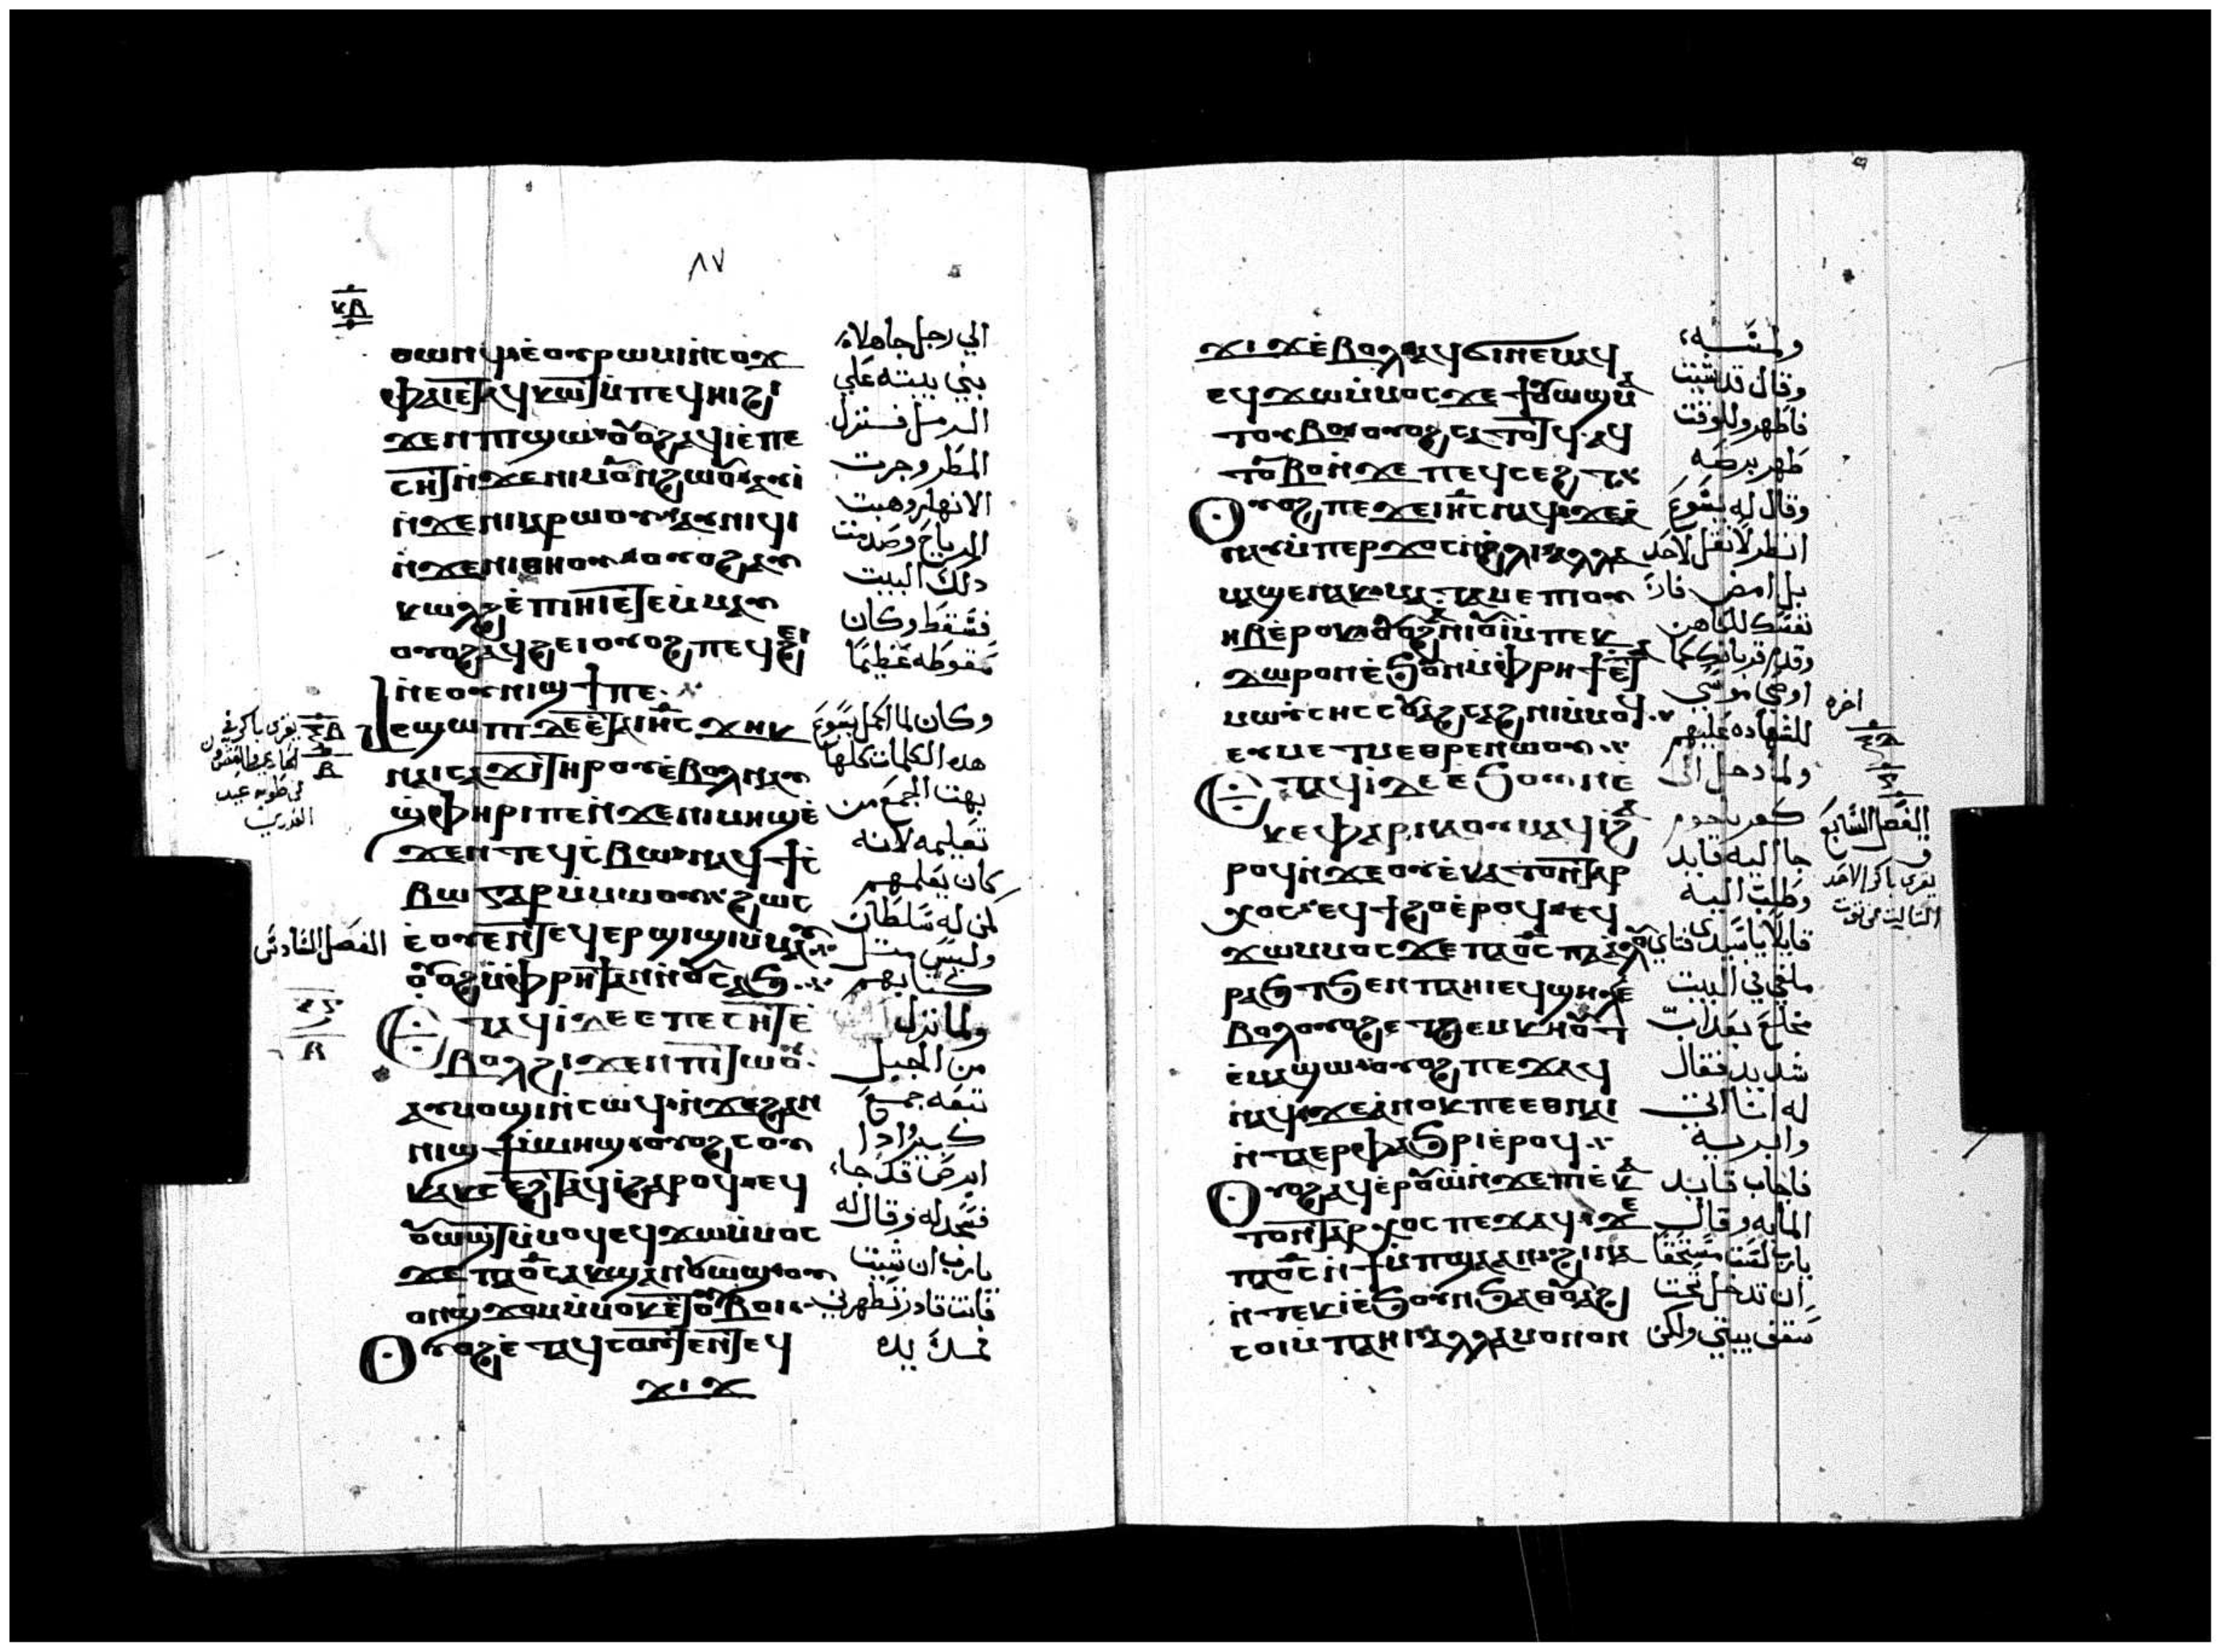 ٨٧
ⲕⲃ
ⲑⲱⲛϥ ⲉⲟⲩⲣⲱⲙⲓ ⲛⲥⲟϫ
ⲫⲁⲓ ⲉⲧⲁϥⲕⲱⲧ ⲙⲡⲉϥⲏⲓ ϩⲓ
ϫⲉⲛ ⲡⲓϣⲱ ⲟⲩⲟϩ ⲁϥⲓ ⲉⲡⲉ
ⲥⲏⲧ ⲛϫⲉ ⲡⲓⲙⲟⲩⲛϩⲱⲟⲩ ⲁⲩⲓ
ⲛϫⲉ ⲛⲓⲓⲁⲣⲱⲟⲩ ⲁⲩⲛⲓϥⲓ
ⲛϫⲉ ⲛⲓⲑⲏⲟⲩ ⲟⲩⲟϩ ⲁⲩ
ⲕⲱⲗϩ ⲉⲡⲓⲏⲓ ⲉⲧⲉⲙⲙⲁⲩ
ⲟⲩⲟϩ ⲁϥϩⲉⲓ ⲟⲩⲟϩ ⲡⲉϥϩⲉⲓ
ⲛⲉⲟⲩⲛⲓϣϯ ⲡⲉ
ⲉϣⲱⲡⲓ ⲇⲉ ⲉⲧⲁ ⲓⲏⲥ ϫⲏⲕ
ⲛⲁⲓⲥⲁϫⲓ ⲧⲏⲣⲟⲩ ⲉⲃⲟⲗ ⲛⲁⲩ
ϣⲫⲏⲣⲓ ⲡⲉ ⲛϫⲉ ⲛⲓⲙⲏϣ ⲉ
ϫⲉⲛ ⲧⲉϥⲥⲃⲱ ⲛⲁϥϯⲥ
ⲃⲱ ⲅⲁⲣ ⲙⲙⲱⲟⲩ ϩⲱⲥ
ⲉⲟⲩⲉⲛⲧⲉϥ ⲉⲣϣⲓϣⲓ ⲙⲙⲁⲩ
ⲟⲩⲟϩ ⲙⲫⲣⲏϯ ⲁⲛ ⲛⲛⲟⲩⲥⲁϧ
ⲉⲧⲁϥⲓ ⲇⲉ ⲉⲡⲉⲥⲏⲧ ⲉ
ⲃⲟⲗϩⲓϫⲉⲛ ⲡⲓⲧⲱⲟⲩ
ⲁⲩⲙⲟϣⲓ ⲛⲥⲱϥ ⲛϫⲉ ϩⲁⲛ
ⲛⲓϣϯ ⲙⲙⲏϣ ⲟⲩⲟϩ ⲥⲟⲩ
ⲕⲁⲕⲥⲉϩⲧ ⲁϥⲓ ϩⲁⲣⲟϥ ⲉϥ
ⲟⲩⲱϣⲧ ⲙⲙⲟϥ ⲉϥϫⲱ ⲙⲙⲟⲥ
ϫⲉ ⲡⲁⲟⲥ ⲁⲕϣⲁⲛⲟⲩⲱϣ ⲟⲩ
ⲟⲛϣϫⲟⲙ ⲙⲙⲟⲕ ⲉⲧⲟⲩⲃⲟⲓ
ⲟⲩⲟϩ ⲉⲧⲁϥⲥⲟⲩⲧⲉⲛ ⲧⲉϥ
ϫⲓϫ
الي رجل جاهلا
بني بيته علي
الرمل فنزل
المطر وجرت
الانهار وهبت
الرياح وصدمت
دلك البيت
فسقط وكان
سقوطه عظيما
وكان لما اكمل يسوع
هده الكلمات كلها
بهت الجمع من
تعليمه لانه
كان يعلمهم
كمن له سلطان
وليس مثل
كتابهم
ولما نزل
من الجبل
تبعه جمع
كبير وادا
ابرص قد جاء
فسجد له وقال له
يارب ان شيت
فانت قادر تطهرني
فمد يده
الفصل السادس
ϫⲓϫ ⲉⲃⲟⲗ ⲁϥϭⲓⲛⲉⲙⲁϥ
ⲉϥϫⲱ ⲙⲙⲟⲥ ϫⲉ ϯⲟⲩⲱϣ ⲙⲁ
ⲧⲟⲩⲃⲟ ⲟⲩⲟϩ ⲥⲁⲧⲟⲧϥ ⲁϥ
ⲧⲟⲩⲃⲟ ⲛϫⲉ ⲡⲉϥⲥⲉϩⲧ
ⲟⲩⲟϩ ⲡⲉϫⲉ ⲓⲏⲥ ⲛⲁϥ ϫⲉ ⲁ
ⲛⲁⲩ ⲙⲡⲉⲣϫⲟⲥ ⲛϩⲗⲓ ⲁⲗⲗⲁ
ⲙⲁϣⲉⲛⲁⲕ ⲙⲁⲧⲁⲙⲉ ⲡⲓⲟⲩ
ⲏⲃ ⲉⲣⲟⲕ ⲟⲩⲟϩ ⲁⲛⲓⲟⲩⲓ ⲙⲡⲉⲕ
ⲇⲱⲣⲟⲛ ⲉϧⲟⲩⲛ ⲙⲫⲣⲏϯ ⲉⲧⲁ
ⲙⲱⲩⲥⲏⲥ ⲟⲩⲁϩⲥⲁϩⲛⲓ ⲙⲙⲟϥ
ⲉⲩⲙⲉⲧⲙⲉⲑⲣⲉ ⲛⲱⲟⲩ
ⲉⲧⲁϥⲓ ⲇⲉ ⲉϧⲟⲩⲛ ⲉ
ⲕⲉⲫⲁⲣⲛⲁⲟⲩⲙ ⲁϥⲓ ϩⲁ
ⲣⲟϥ ⲛϫⲉ ⲟⲩⲉⲕⲁⲧⲟⲛⲧⲁⲣ
ⲭⲟⲥ ⲉϥϯϩⲟ ⲉⲣⲟϥ ⲉϥ
ϫⲱⲙⲙⲟⲥ ϫⲉ ⲡⲁⲟⲥ ⲡⲁⲁⲗⲟⲩ
ⲣⲁϧⲧ ϧⲉⲛ ⲡⲁⲏⲓ ⲉϥϣⲏⲗ ⲉ
ⲃⲟⲗ ⲟⲩⲟϩ ⲉⲧϩⲉⲙⲕⲏⲟⲩⲧ
ⲉⲙⲁϣⲱ ⲟⲩⲟϩ ⲡⲉϫⲁϥ
ⲛⲁϥ ϫⲉ ⲁⲛⲟⲕ ⲡⲉⲉⲑⲛⲁⲓ
ⲛⲧⲁⲉⲣⲫⲁϧⲣⲓ ⲉⲣⲟϥ
ⲟⲩⲟϩ ⲁϥⲉⲣⲟⲩⲱ ⲛϫⲉ ⲡⲓⲉⲕⲁ
ⲧⲟⲛⲧⲁⲣⲭⲟⲥ ⲡⲉϫⲁϥ ϫⲉ
ⲡⲁⲟⲥ ⲛϯⲙⲡϣⲁ ⲁⲛ ϩⲓⲛⲁ
ⲛⲧⲉⲕⲓ ⲉϧⲟⲩⲛ ϧⲁ ⲑⲟⲩⲁϩ
ⲥⲟⲓ ⲙⲡⲁⲏⲓ ⲁⲗⲗⲁ ⲙⲟⲛⲟⲛ
ولمسه
وقال قد شيت
فاطهر وللوقت
طهر برصه
وقال له يسوع
انظر لا تقل لاحد
بل امض فار
نفسك للكاهن
وقدم قربانك كما
اوصي موسي
للشهاده عليهم
ولما دخل الي
كفرناحوم
جا اليه قايد
وطلب اليه
قايلا ياسيدي فتاي
ملقي في البيت
مخلع بعداب
شديد فقال
له انا اتي
وابريه
فاجاب قايد
المايه وقال
يارب لست مستحقا
ان تدخل تحت
سقف بيتي ولكن
اخره
الفصل السابع
يقرى باكر الاحد
التالت من توت